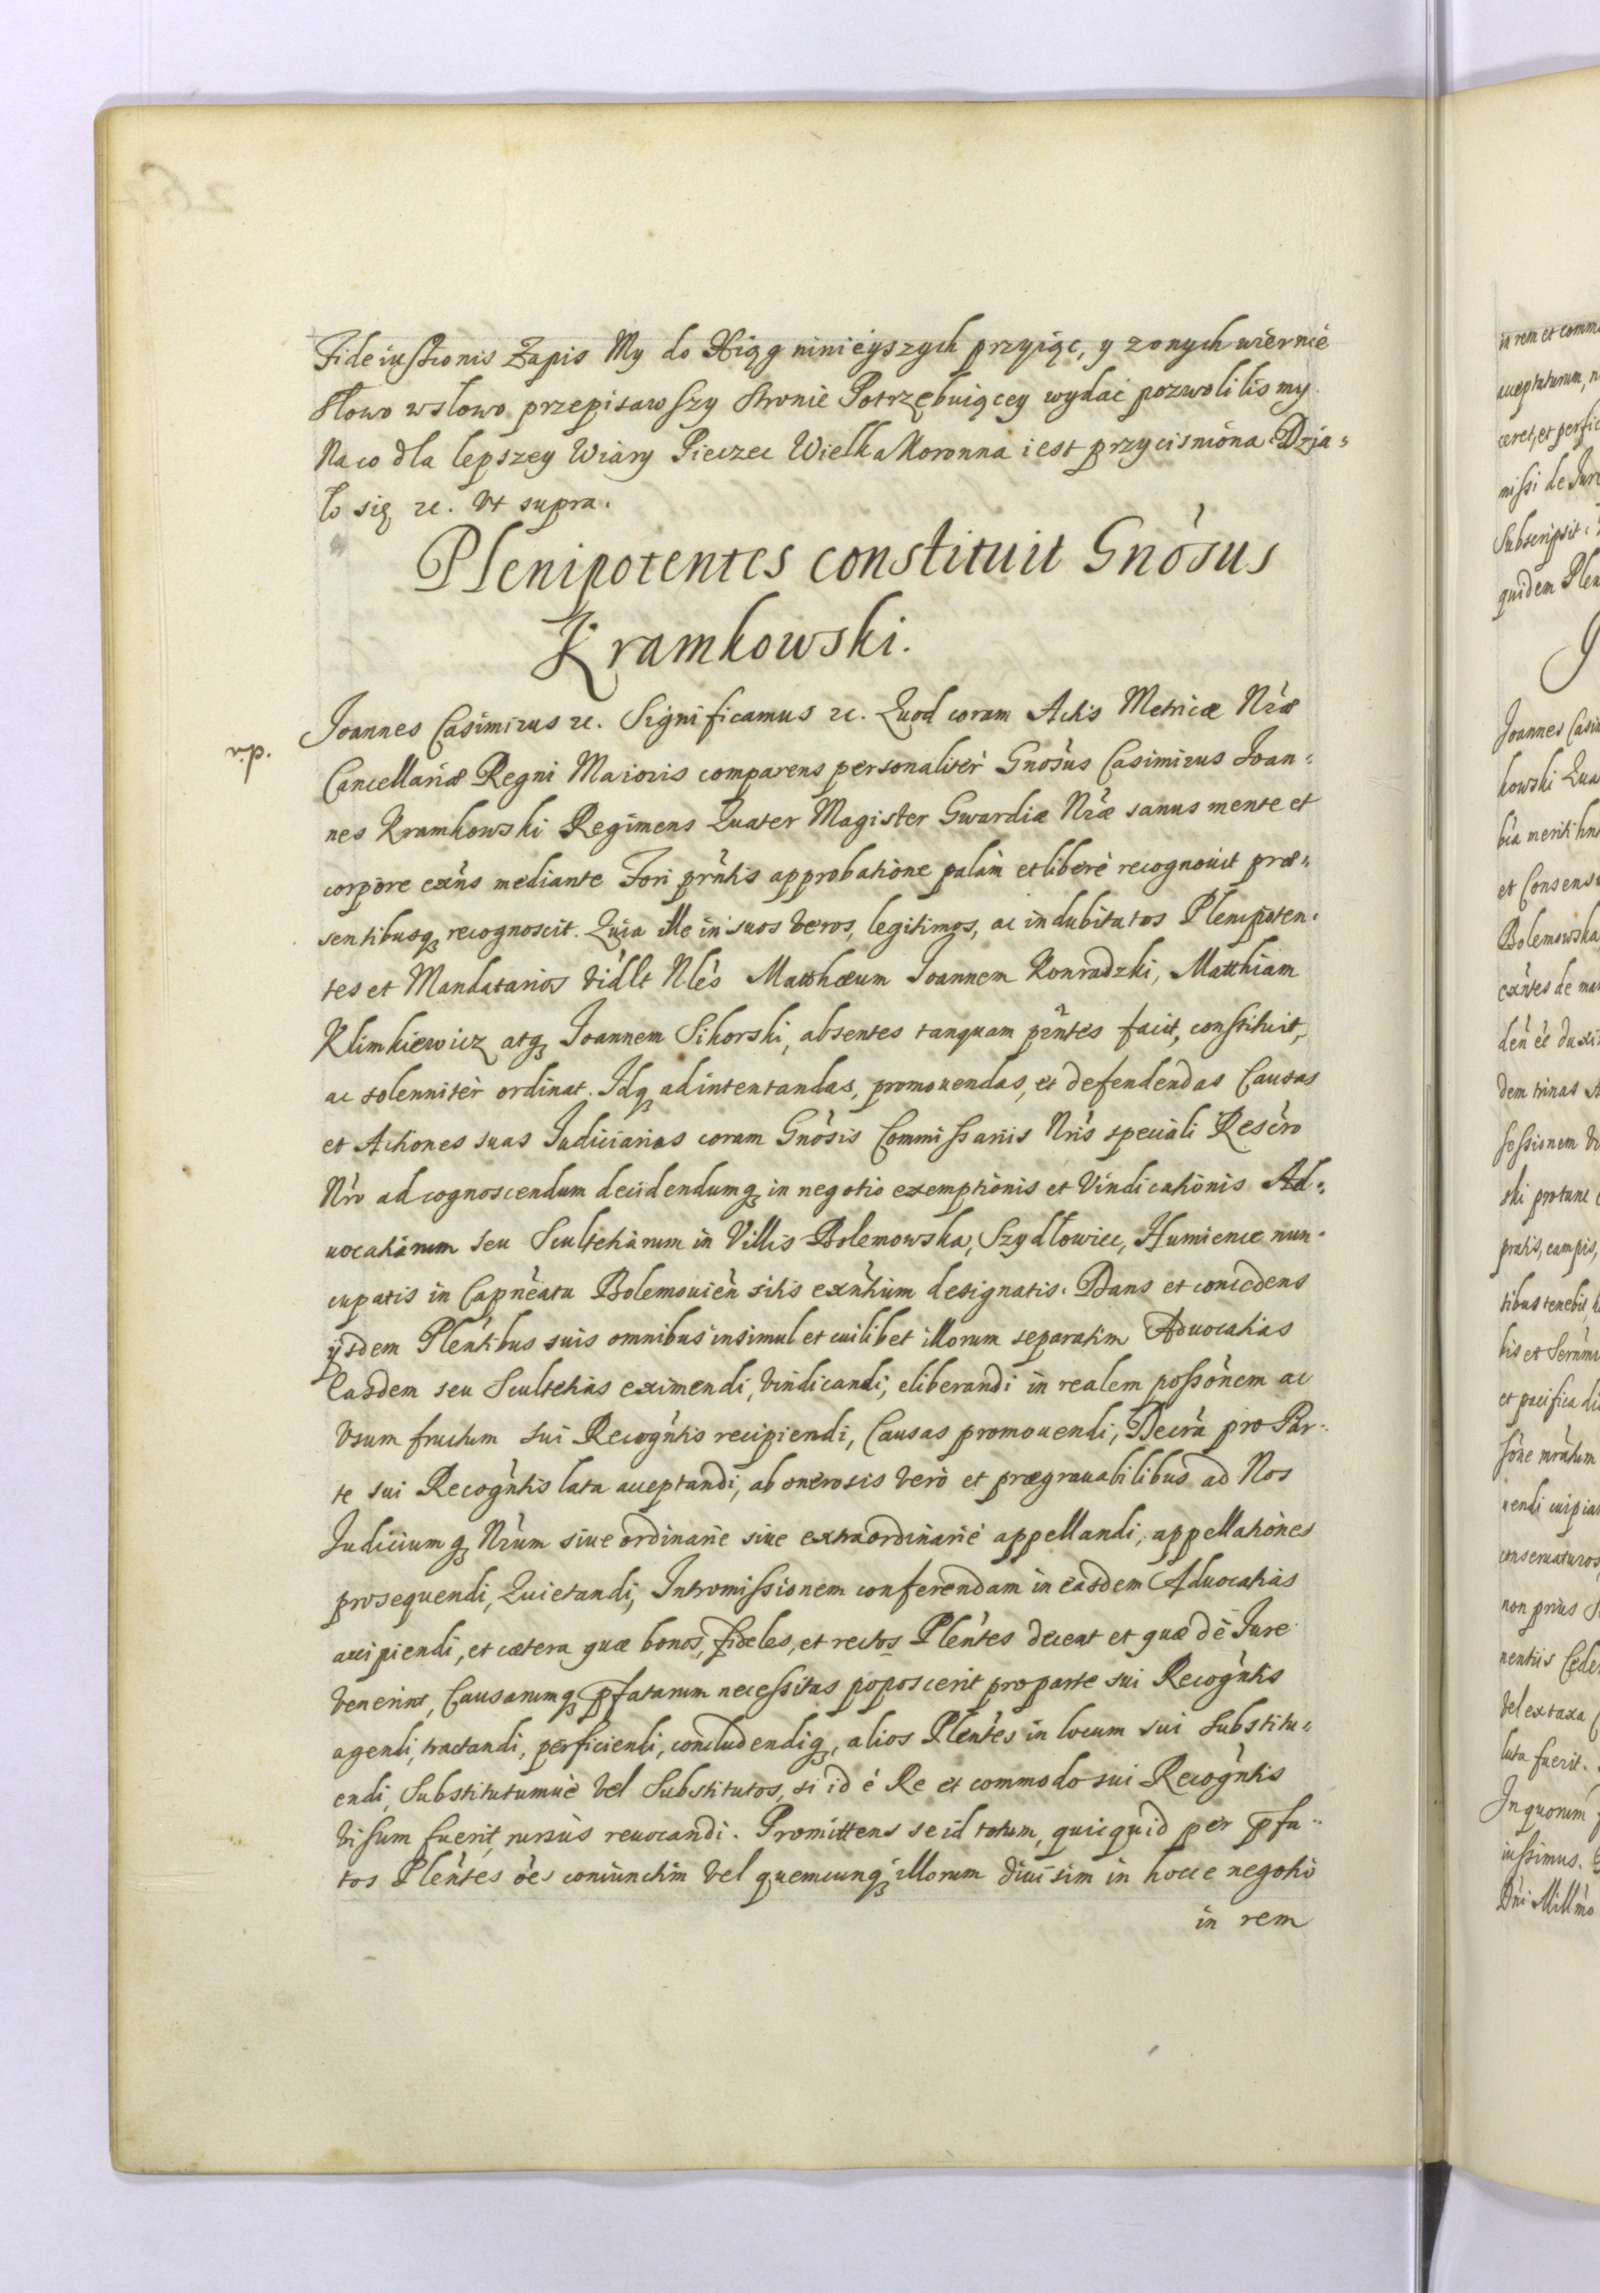 Fideiussionis Zapis My do Xiąg ninieyszych przyiąc, y zonych wiernie
słowo wslowo przepisawszy stronie Potrzebuiącey wydać pozwolilismy.
Na co dla lepszey Wiary Pieczec Wielka Koronna iest przycisniona. Dzia=
ło się etc. Vt supra.
Plenipotentes constituit Gnòsus
Kramkowski.
Joannes Casimirus etc. Significamus etc. Quod coram Actis Metricæ Nr̀æ
Cancellariæ Regni Maioris comparens personalitèr Gnòsus Casimirus Joan=
nes Kramkowski Regimens Quater Magister Gwardiæ Nr̀æ sanus mente et
corpore exǹs mediante Fori prǹtis approbatione palàm et liberè recognouit præ=
sentibusq; recognoscit. Quia ille in suos veros, legitimos, ac indubitatos Plenipoten=
tes et Mandatarios vidlt Nlès Matthæum Joannem Konradzki, Matthiam
Klimkiewicz atq; Joannem Sikorski, absentes tanquam pǹtes facit, constituit,
ac solennitèr ordinat. Idq; ad intentandas, promouendas, et defendendas Causas
et Actiones suas Judiciarias coram Gnòsis Commissariis Nr̀is speciali Rescr̀o
Nr̀o ad cognoscendum decidendumq; in negotio exemptionis et Vindicationis Ad=
uocatiarum seu Scultetiarum in Villis Bolemowska, Szydłowiec, Humience nun=
cupatis in Capneàtu Bolemouieǹ sitis exǹtium designatis. Dans et concedens
ijsdem Pleǹtibus suis omnibus insimul et cuilibet illorum separatim Aduocatias
Easdem seu Scultetias eximendi, vindicandi, eliberandi in realem possònem ac
Vsum fructum sui Recogǹtis recipiendi, Causas promouendi, Decr̀a pro Par=
te sui Recogǹtis lata acceptandi, ab onerosis verò et prægrauabilibus ad Nos
Judiciumq; Nr̀um siue ordinarie siue extraordinariè appellandi, appellationes
prosequendi, Quietandi, Intromissionem conferendam in easdem Aduocatias
accipiendi, et cætera quæ bonos, fideles, et rectos Pleǹtes decent et quæ dè Jure
venerint, Causarumq; pfatarum necessitas poposcerit pro parte sui Recogǹtis
agendi, tractandi, perficiendi, concludendiq;, alios Pleǹtes in locum sui substitu=
endi, Substitutumuè vel Substitutos, si id è Re et commodo sui Recogǹtis
visum fuerit, rursùs reuocandi. Promittens se id totum, quicquid per pfa=
tos Pleǹtes oès coniunctim vel quemcunq; illorum diuisim in hocce negotio
in rem